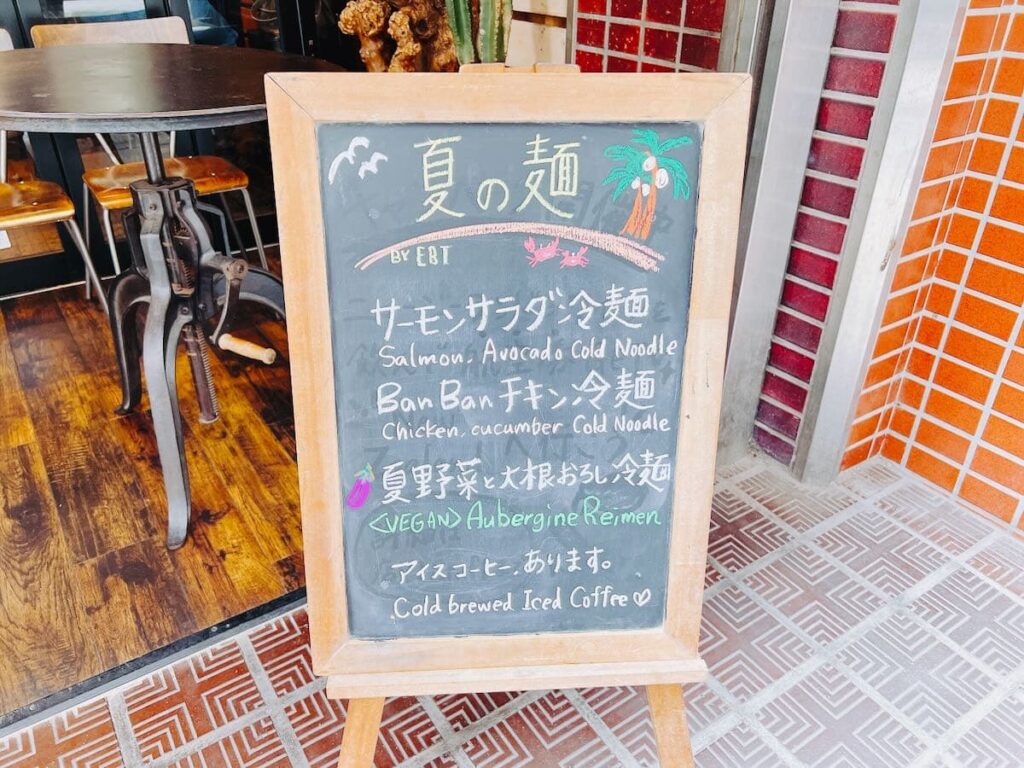 夏の麺
BY EBT
サーモンサラダ冷麺
Salmon, Avocado Cold Noodle
Ban Ban チキン冷麺
Chicken, cucumber Cold Noodle
夏野菜と大根おろし冷麺
<VEGAN> Aubergine Reimen
アイスコーヒー、あります。
Cold brewed Iced Coffee♡